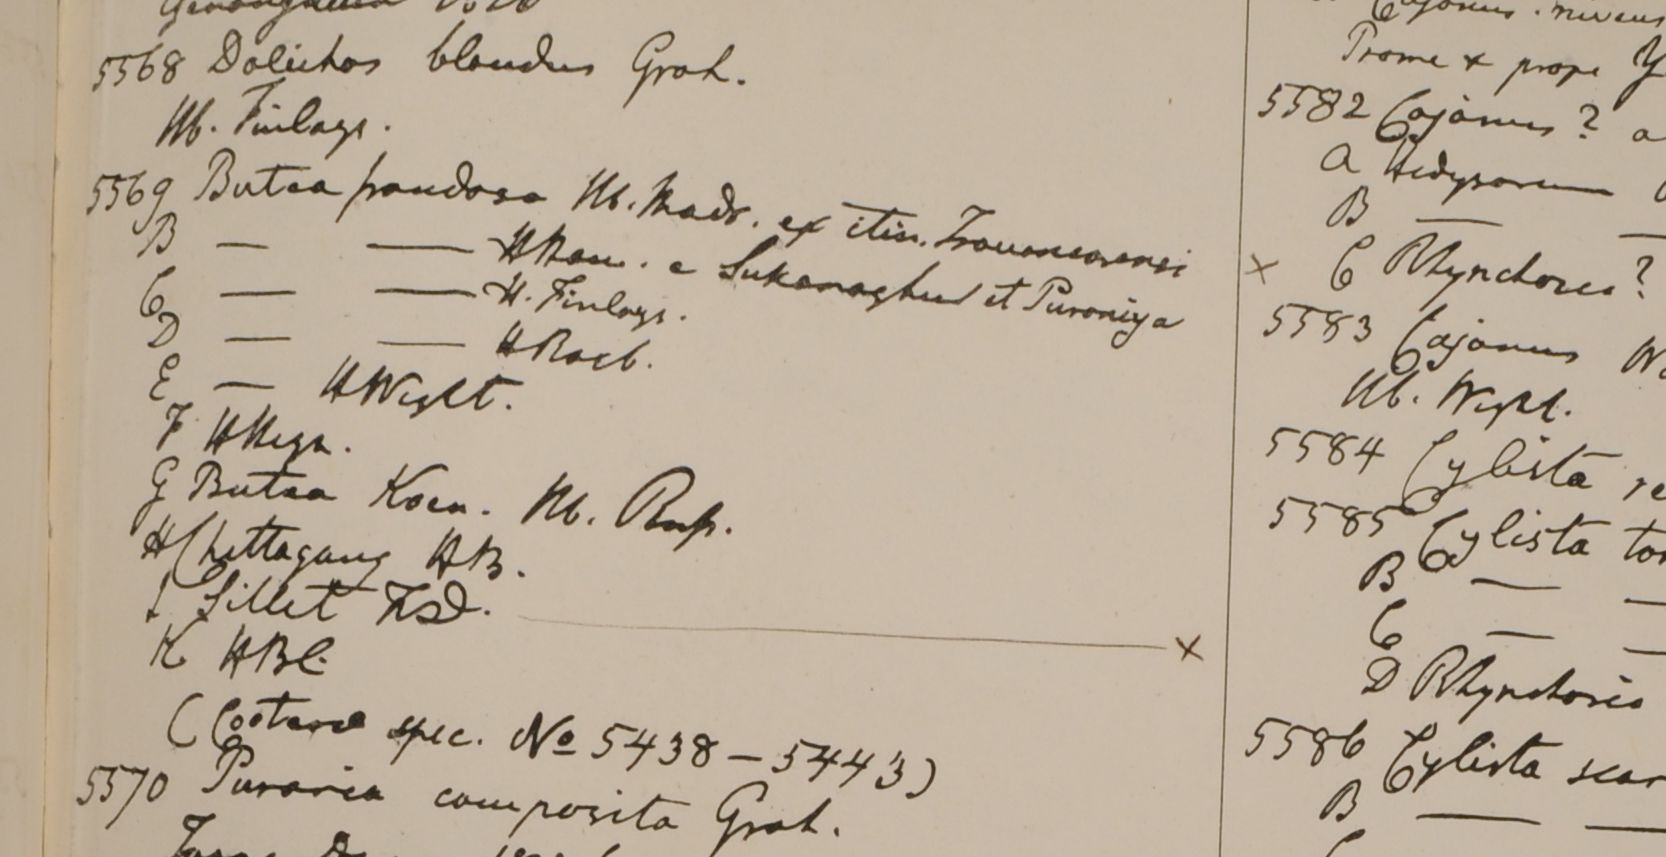 5568 Dolichos blandus Grah.
Hb. Finlays.
5569 Butea frondosa Hb. Madr. ex itin. Travancorensi
B — — HHam. e Sukanaghur et Puroniya
C — — H. Finlays.
D — — HRoxb.
E — HWight.
F HHeyn.
G Butea Koen. Hb. Rusp.
H Chittagong HB.
I Sillet FSD.
K HBC
(Coetera spec. No 5438 – 5443)
5570 Pueraria composita Grah.
Cajanus niveus
Prome & prope Y
5582 Cajanus? a
a Hedysarum
B — —
× C Rhynchosia?
5583 Cajanus W
Hb. Wight.
5584 Cylista
5585 Cylista tom
B — —
C — —
D Rhynchosia
5586 Cylista scar
B — —